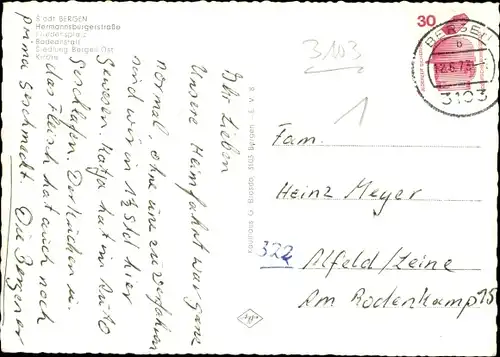 Stadt BERGEN
Hermannsburgerstraße
Friedensplatz
Badeanstalt
Siedlung Bergen Ost
Kirche
Ihr Lieben
Unsere Heimfahrt war ganz
normal, ohne uns zu verfahren
sind wir in 1½ Std hier
gewesen. Katja hat im Auto
geschlafen. Der Kuchen u.
das Fleisch hat auch noch
prima geschmeckt. Die Bergener
Kaufhaus G. 3103 Bergen
3103
1
30
BERGEN
b
3103
Fam.
Heinz Meyer
322
Alfeld/Leine
Am Rodenkamp 15